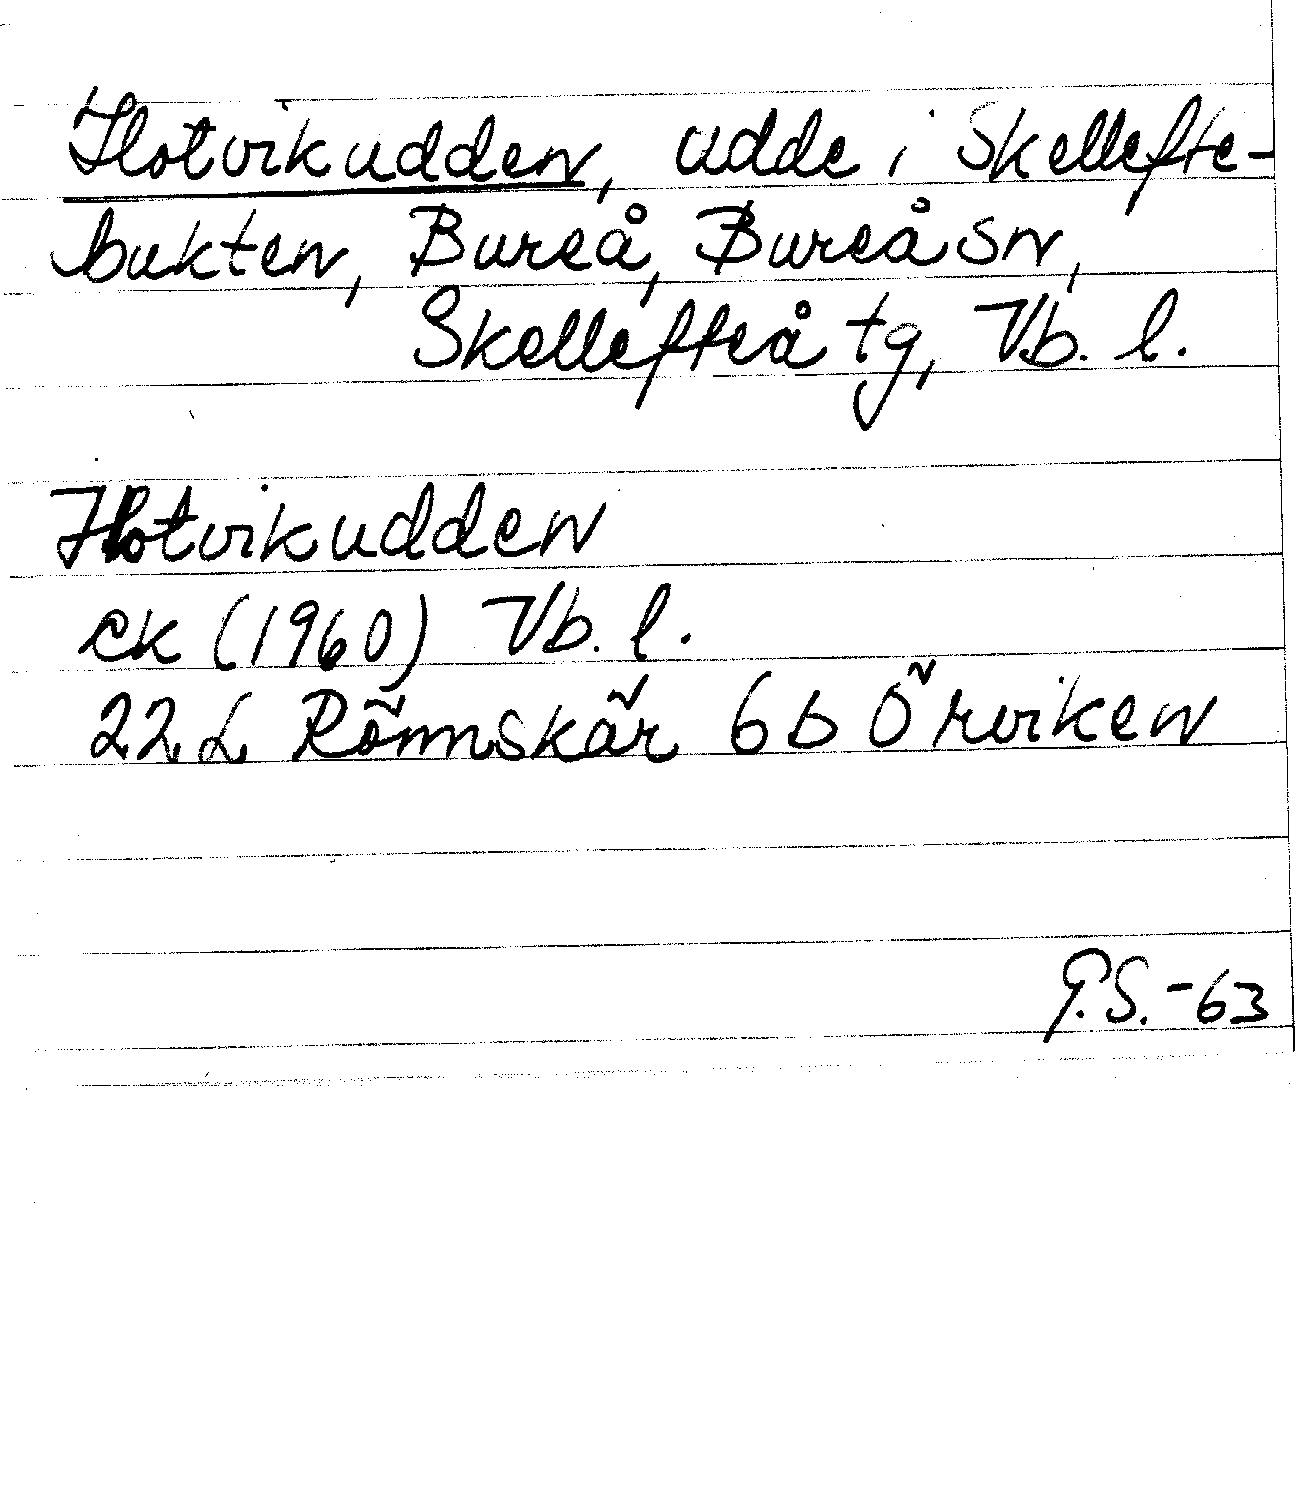 Flotvikudden, udde i Skellefte-
bukten, Bureå, Bureå sn,
Skellefteå tg, Vb. l.
Flotvikudden
ek (1960) Vb. l.
22 L Rönnskär 6 b Örviken
G.S.-63